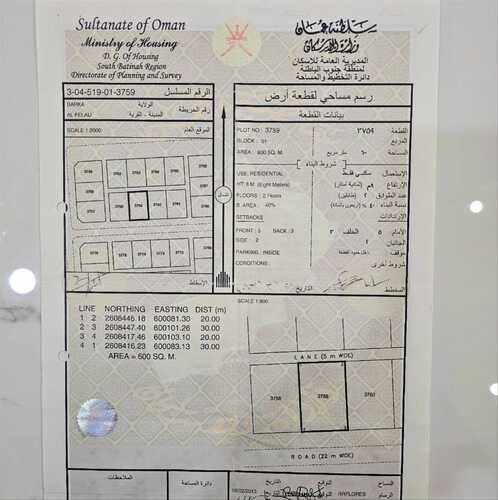 Sultanate of Oman
سلطنة عمان
Ministry of Housing
وزارة الإسكان
D. G. Of Housing
المديرية العامة للاسكان
South Batinah Region
لمنطقة جنوب الباطنة
Directorate of Planning and Survey
دائرة التخطيط والمساحة
3-04-519-01-3759
الرقم المسلسل
رسم مساحي لقطعة أرض
BARKA
الولاية
AL FELAIJ
المدينة - القرية
رقم الخريطة
بيانات القطعة
SCALE 1:2000
الموقع العام
PLOT NO: 3759
القطعة
BLOCK : 01
المربع
AREA : 600 SQ. M.
متر مربع
المساحة
شروط البناء
USE: RESIDENTIAL
سكني فقط
الاستعمال
HT: 8 M. (Eight Meters)
الارتفاع
FLOORS : 2 floors
عدد الطوابق
B. AREA : 40%
نسبة البناء
SETBACKS
الارتدادات
FRONT : 5 BACK : 3
الخلف ٣
الأمام ٥
SIDE : 2
الجانبان ٢
PARKING : INSIDE
داخل حدود القطعة
CONDITIONS :
شروط اخرى
التاريخ
المخطط
LINE NORTHING EASTING DIST (m)
1 2 2608446.18 600081.30 20.00
2 3 2608447.40 600101.26 30.00
3 4 2608417.46 600103.10 20.00
4 1 2608416.23 600083.13 30.00
AREA = 600 SQ. M.
LANE (5 m WIDE)
ROAD (22 m WIDE)
ملاحظات
دائرة المساحة
التاريخ
التوقيع
RAFLORES